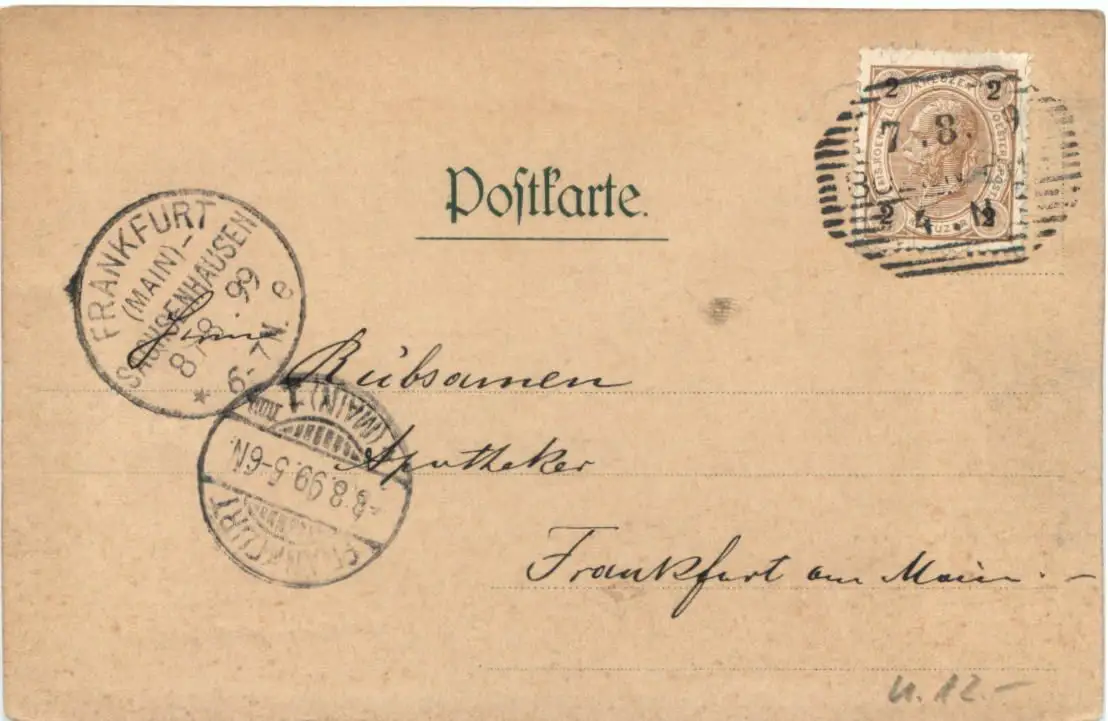 Postkarte.
2 KREUZER 2
7.8.9
2 2
FRANKFURT
(MAIN)-
SACHSENHAUSEN
8/8.99
6-7N.
* e
Rübsamen
(MAIN) 1
Apotheker
-8.8.99.5-6N.
FRANKFURT
Frankfurt am Main.-
12.-